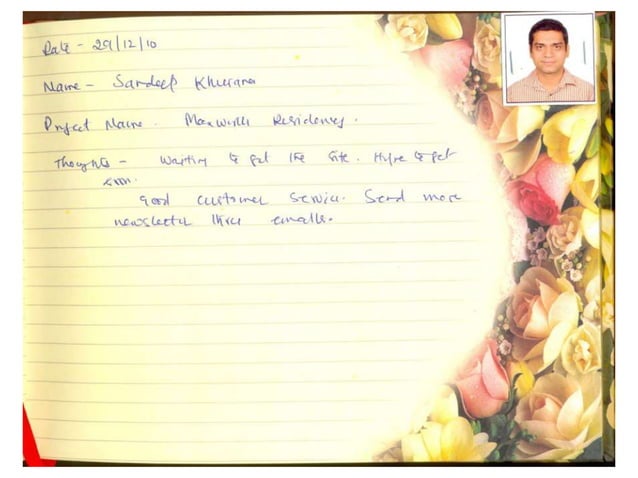 Date - 29/12/10
Name - Sandeep Khurana
Project Name. Maxworth Residences.
Thoughts - Waiting to get the site. Hope to get
soon.
Good customer service. Send more
newsletter thru emails.